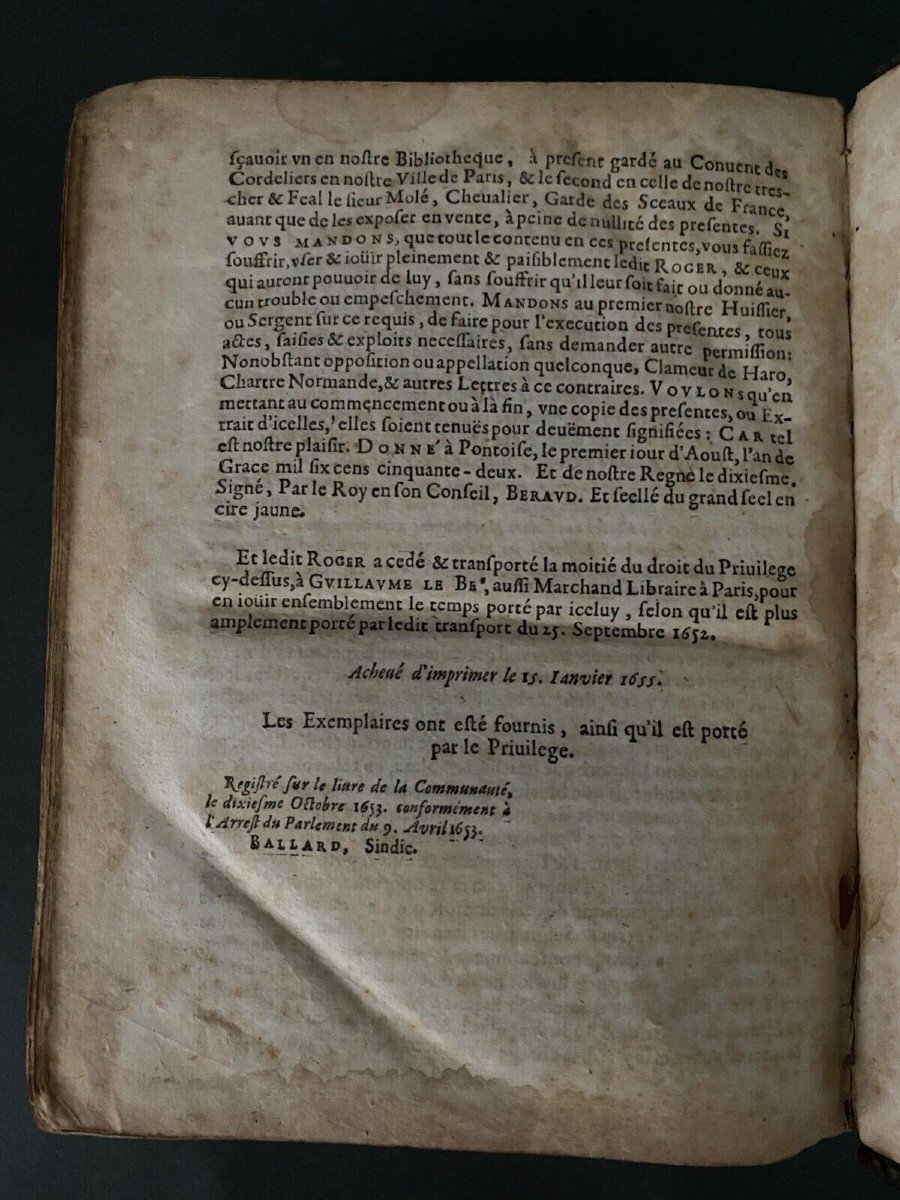 sçauoir vn en nostre Bibliotheque, à present gardé au Conuent des
Cordeliers en nostre Ville de Paris, & le second en celle de nostre tres-
cher & Feal le sieur Molé, Cheualier, Garde des Sceaux de France,
auant que de les exposer en vente, à peine de nullité des presentes. SI
VOVS MANDONS, que tout le contenu en ces presentes, vous fassiez
souffrir, vser & ioüir pleinement & paisiblement ledit ROGER, & ceux
qui auront pouuoir de luy, sans souffrir qu'il leur soit fait ou donné au-
cun trouble ou empeschement. MANDONS au premier nostre Huissier,
ou Sergent sur ce requis, de faire pour l'execution des presentes, tous
actes, saisies & exploits necessaires, sans demander autre permission;
Nonobstant opposition ou appellation quelconque, Clameur de Haro,
Chartre Normande, & autres Lettres à ce contraires. VOVLONS qu'en
mettant au commencement ou à là fin, vne copie des presentes, ou Ex-
trait d'icelles, elles soient tenuës pour deuëment signifiées: CAR tel
est nostre plaisir. DONNÉ à Pontoise, le premier iour d'Aoust, l'an de
Grace mil six cens cinquante-deux. Et de nostre Regne le dixiesme.
Signé, Par le Roy en son Conseil, BERAVD. Et seellé du grand seel en
cire jaune.
Et ledit ROGER a cedé & transporté la moitié du droit du Priuilege
cy-dessus, à GVILLAVME LE BEʼ, aussi Marchand Libraire à Paris, pour
en ioüir ensemblement le temps porté par iceluy, selon qu'il est plus
amplement porté par ledit transport du 25. Septembre 1652.
Acheué d'imprimer le 15. Ianvier 1655.
Les Exemplaires ont esté fournis, ainsi qu'il est porté
par le Priuilege.
Registré sur le liure de la Communauté,
le dixiesme Octobre 1653. conformément à
l'Arrest du Parlement du 9. Avril 1653.
BALLARD, Sindic.